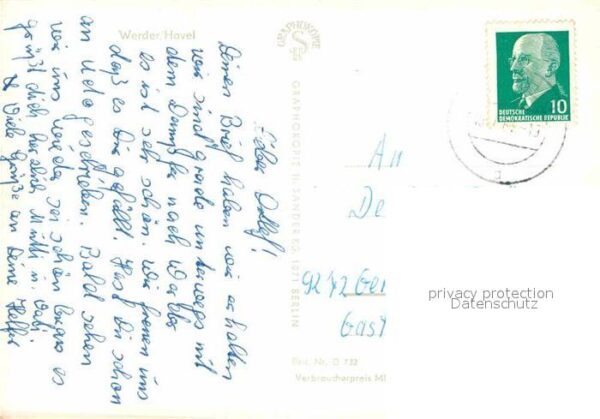 Werder/Havel
Lieber Detlef!
Deinen Brief haben wir erhalten
wir sind grade unterwegs mit
dem Dampfer nach Werder
es ist sehr schön. Wir freuen uns
daß es Dir gefällt. Hast Du schon
an Udo geschrieben. Bald sehen
wir uns wieder sei schön brav es
grüßt dich herzlich Mutti u. Vati
Viele Grüße an Deine Helfer
GRAPHOKOPIE
GRAPHOKOPIE H. SANDER KG, 1071 BERLIN
Best. Nr. O 732
Verbraucherpreis M
10
DEUTSCHE
DEMOKRATISCHE REPUBLIK
An
De
9272 Ger
Gast
privacy protection
Datenschutz